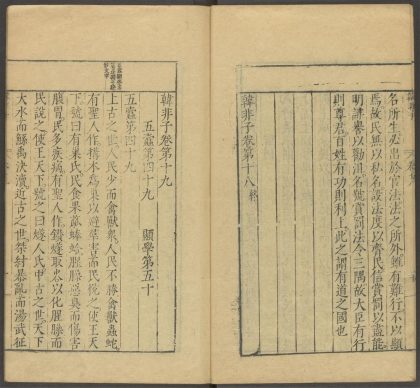 名所生必出於官法法之所外雖有難行不以顯
焉故民無以私名設法度以齊民信賞罰以盡能
明誹譽以勸沮名號賞罰法令三隅故大臣有行
則尊君百姓有功則利上此之謂有道之國也
韓非子卷第十八終
韓非子卷第十九
五蠹第四十九 顯學第五十
五蠹第四十九
上古之世人民少而禽獸衆人民不勝禽獸蟲蛇
有聖人作搆木為巢以避羣害而民悅之使王天
下號曰有巢氏民食果蓏蜯蛤腥臊惡臭而傷害
腹胃民多疾病有聖人作鑽燧取火以化腥臊而
民說之使王天下號之曰燧人氏中古之世天下
大水而鯀禹決瀆近古之世桀紂暴亂而湯武征